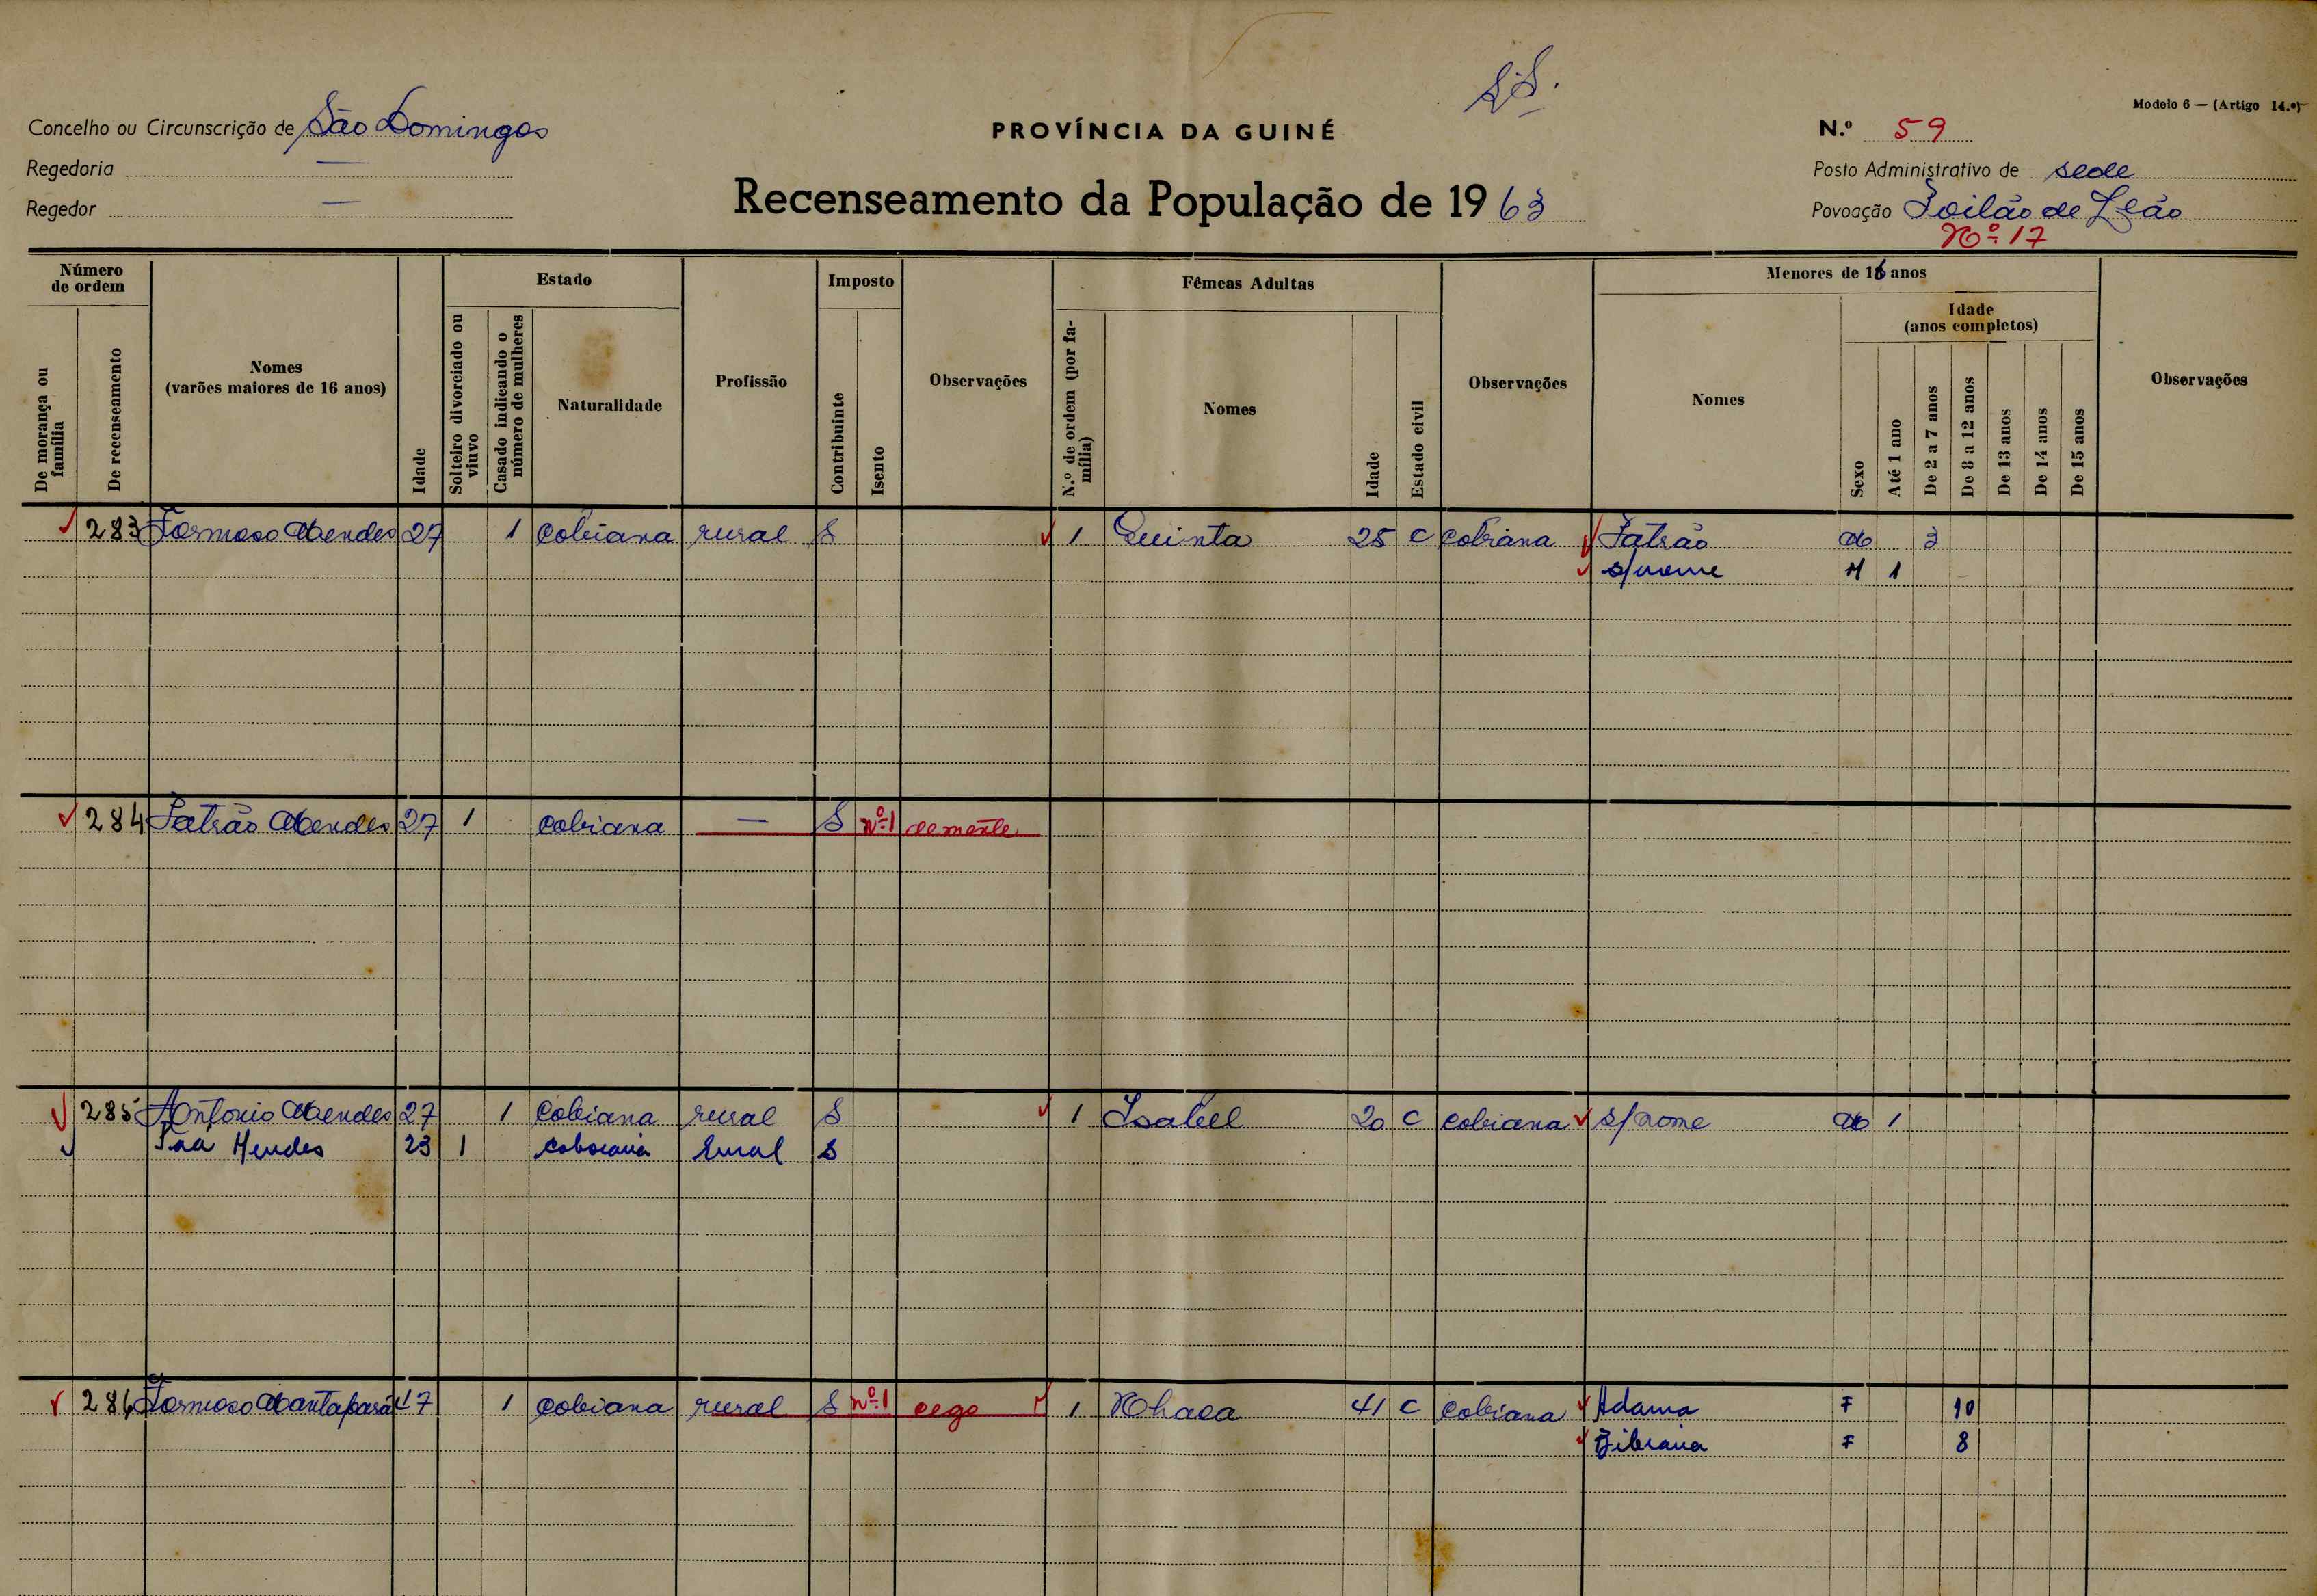 S.S.
Modelo 6 — (Artigo 14.º)
Concelho ou Circunscrição de São Domingos
PROVÍNCIA DA GUINÉ
N.º 59
Regedoria —
Posto Administrativo de sede
Regedor —
Recenseamento da População de 1963
Povoação Poilão de Leão
Nº 17
Número de ordem
De morança ou família
De recenseamento
Nomes
(varões maiores de 16 anos)
Idade
Estado
Solteiro divorciado ou viuvo
Casado indicando o número de mulheres
Naturalidade
Profissão
Imposto
Contribuinte
Isento
Observações
Fêmeas Adultas
N.º de ordem (por família)
Nomes
Idade
Estado civil
Observações
Menores de 16 anos
Nomes
Sexo
Idade
(anos completos)
Até 1 ano
De 2 a 7 anos
De 8 a 12 anos
De 13 anos
De 14 anos
De 15 anos
Observações
283 Formoso Mendes 27 1 cobiana rural S 1 Quinta 25 C cobiana Patrão M 3
s/nome M 1
284 Patrão Mendes 27 1 cobiana — S nº 1 demente
285 Antonio Mendes 27 1 cobiana rural S 1 Isabel 20 C cobiana s/nome M 1
Mendes 23 1 cobiana rural S
286 Formoso 47 1 cobiana rural S nº 1 cego 1 Nhaca 41 C cobiana Adama F 10
Bibiana F 8